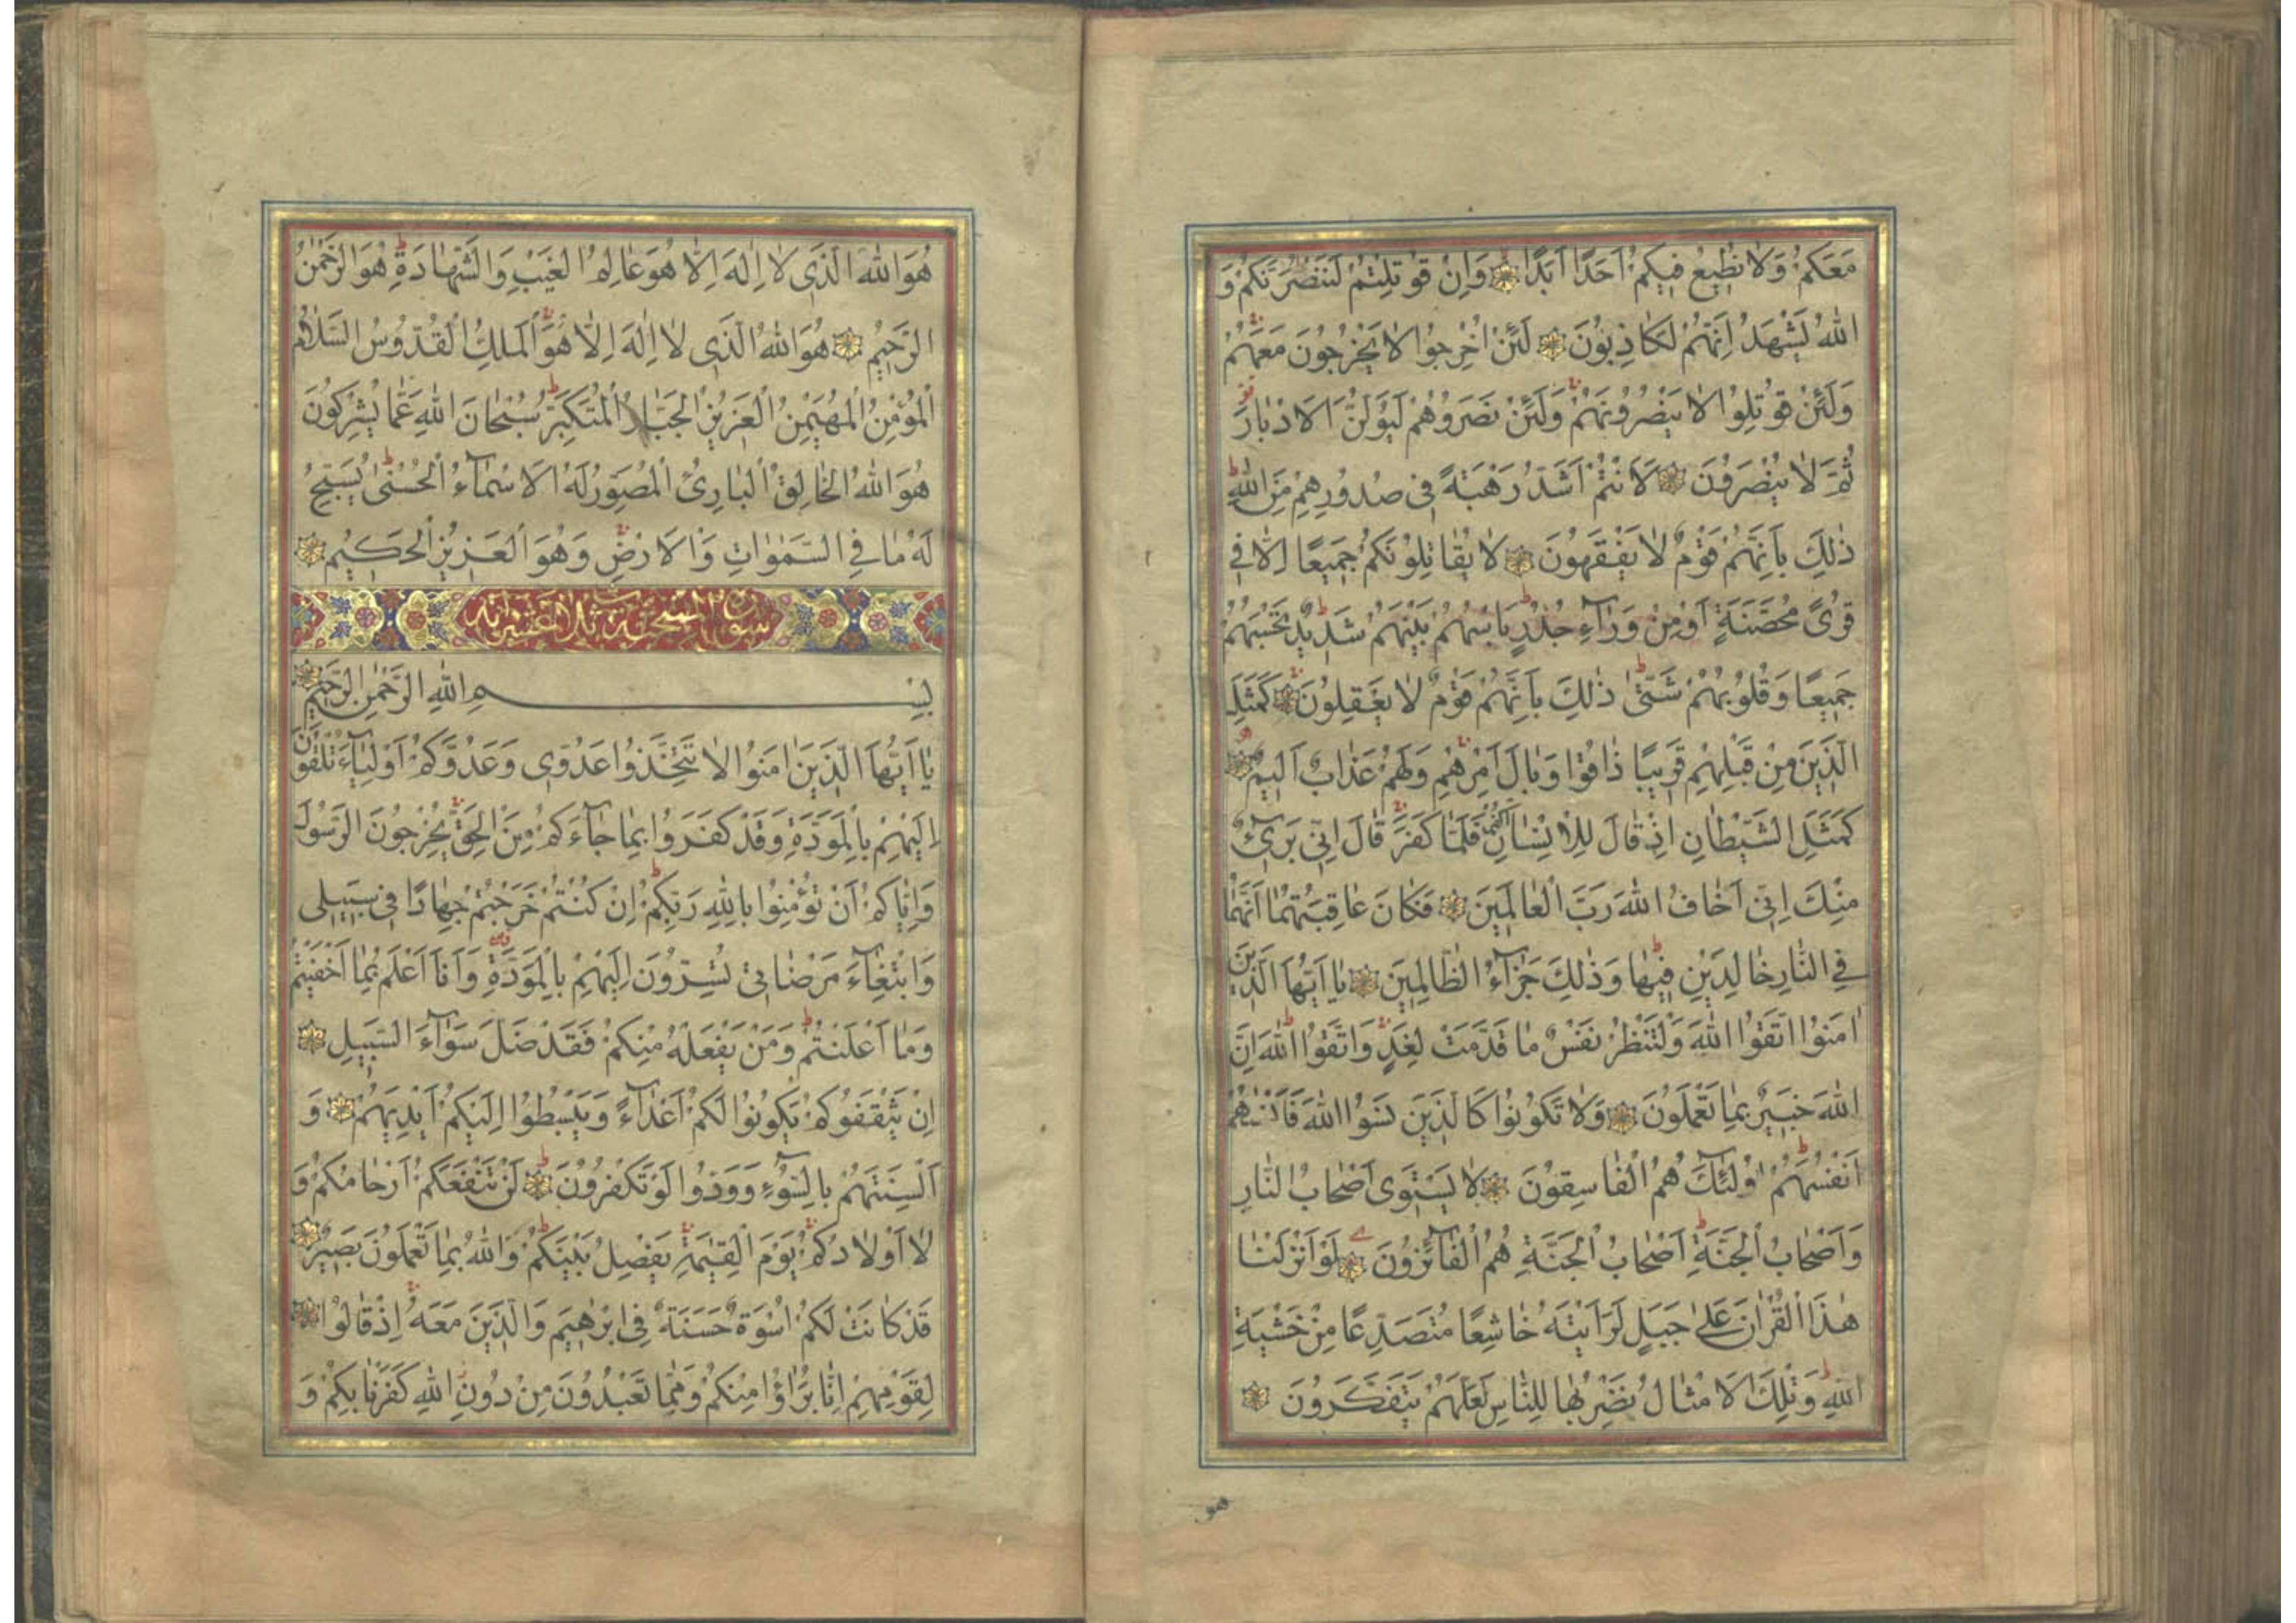 مَعَكُمْ وَلَا نُطِيعُ فِيكُمْ اَحَدًا اَبَدًا وَاِنْ قُوتِلْتُمْ لَنَنْصُرَنَّكُمْ وَ
اللّٰهُ يَشْهَدُ اِنَّهُمْ لَكَاذِبُونَ لَئِنْ اُخْرِجُوا لَا يَخْرُجُونَ مَعَهُمْ
وَلَئِنْ قُوتِلُوا لَا يَنْصُرُونَهُمْ وَلَئِنْ نَصَرُوهُمْ لَيُوَلُّنَّ الْاَدْبَارَ
ثُمَّ لَا يُنْصَرُونَ لَاَنْتُمْ اَشَدُّ رَهْبَةً فِي صُدُورِهِمْ مِنَ اللّٰهِ
ذٰلِكَ بِاَنَّهُمْ قَوْمٌ لَا يَفْقَهُونَ لَا يُقَاتِلُونَكُمْ جَمِيعًا اِلَّا فِي
قُرًى مُحَصَّنَةٍ اَوْ مِنْ وَرَآءِ جُدُرٍ بَاْسُهُمْ بَيْنَهُمْ شَدِيدٌ تَحْسَبُهُمْ
جَمِيعًا وَقُلُوبُهُمْ شَتّٰى ذٰلِكَ بِاَنَّهُمْ قَوْمٌ لَا يَعْقِلُونَ كَمَثَلِ
الَّذِينَ مِنْ قَبْلِهِمْ قَرِيبًا ذَاقُوا وَبَالَ اَمْرِهِمْ وَلَهُمْ عَذَابٌ اَلِيمٌ
كَمَثَلِ الشَّيْطَانِ اِذْ قَالَ لِلْاِنْسَانِ اكْفُرْ فَلَمَّا كَفَرَ قَالَ اِنِّي بَرِيٓءٌ
مِنْكَ اِنِّي اَخَافُ اللّٰهَ رَبَّ الْعَالَمِينَ فَكَانَ عَاقِبَتَهُمَا اَنَّهُمَا
فِي النَّارِ خَالِدَيْنِ فِيهَا وَذٰلِكَ جَزَآءُ الظَّالِمِينَ يَا اَيُّهَا الَّذِينَ
اٰمَنُوا اتَّقُوا اللّٰهَ وَلْتَنْظُرْ نَفْسٌ مَا قَدَّمَتْ لِغَدٍ وَاتَّقُوا اللّٰهَ اِنَّ
اللّٰهَ خَبِيرٌ بِمَا تَعْمَلُونَ وَلَا تَكُونُوا كَالَّذِينَ نَسُوا اللّٰهَ فَاَنْسٰهُمْ
اَنْفُسَهُمْ اُولٰٓئِكَ هُمُ الْفَاسِقُونَ لَا يَسْتَوِي اَصْحَابُ النَّارِ
وَاَصْحَابُ الْجَنَّةِ اَصْحَابُ الْجَنَّةِ هُمُ الْفَآئِزُونَ لَوْ اَنْزَلْنَا
هٰذَا الْقُرْاٰنَ عَلٰى جَبَلٍ لَرَاَيْتَهُ خَاشِعًا مُتَصَدِّعًا مِنْ خَشْيَةِ
اللّٰهِ وَتِلْكَ الْاَمْثَالُ نَضْرِبُهَا لِلنَّاسِ لَعَلَّهُمْ يَتَفَكَّرُونَ
هو
هُوَ اللّٰهُ الَّذِي لَا اِلٰهَ اِلَّا هُوَ عَالِمُ الْغَيْبِ وَالشَّهَادَةِ هُوَ الرَّحْمٰنُ
الرَّحِيمُ هُوَ اللّٰهُ الَّذِي لَا اِلٰهَ اِلَّا هُوَ اَلْمَلِكُ الْقُدُّوسُ السَّلَامُ
الْمُؤْمِنُ الْمُهَيْمِنُ الْعَزِيزُ الْجَبَّارُ الْمُتَكَبِّرُ سُبْحَانَ اللّٰهِ عَمَّا يُشْرِكُونَ
هُوَ اللّٰهُ الْخَالِقُ الْبَارِئُ الْمُصَوِّرُ لَهُ الْاَسْمَآءُ الْحُسْنٰى يُسَبِّحُ
لَهُ مَا فِي السَّمٰوَاتِ وَالْاَرْضِ وَهُوَ الْعَزِيزُ الْحَكِيمُ
سورة الممتحنة ثلث عشر آية
بِسْمِ اللّٰهِ الرَّحْمٰنِ الرَّحِيمِ
يَا اَيُّهَا الَّذِينَ اٰمَنُوا لَا تَتَّخِذُوا عَدُوِّي وَعَدُوَّكُمْ اَوْلِيَآءَ تُلْقُونَ
اِلَيْهِمْ بِالْمَوَدَّةِ وَقَدْ كَفَرُوا بِمَا جَآءَكُمْ مِنَ الْحَقِّ يُخْرِجُونَ الرَّسُولَ
وَاِيَّاكُمْ اَنْ تُؤْمِنُوا بِاللّٰهِ رَبِّكُمْ اِنْ كُنْتُمْ خَرَجْتُمْ جِهَادًا فِي سَبِيلِي
وَابْتِغَآءَ مَرْضَاتِي تُسِرُّونَ اِلَيْهِمْ بِالْمَوَدَّةِ وَاَنَا اَعْلَمُ بِمَا اَخْفَيْتُمْ
وَمَا اَعْلَنْتُمْ وَمَنْ يَفْعَلْهُ مِنْكُمْ فَقَدْ ضَلَّ سَوَآءَ السَّبِيلِ
اِنْ يَثْقَفُوكُمْ يَكُونُوا لَكُمْ اَعْدَآءً وَيَبْسُطُوا اِلَيْكُمْ اَيْدِيَهُمْ وَ
اَلْسِنَتَهُمْ بِالسُّوٓءِ وَوَدُّوا لَوْ تَكْفُرُونَ لَنْ تَنْفَعَكُمْ اَرْحَامُكُمْ وَ
لَا اَوْلَادُكُمْ يَوْمَ الْقِيٰمَةِ يَفْصِلُ بَيْنَكُمْ وَاللّٰهُ بِمَا تَعْمَلُونَ بَصِيرٌ
قَدْ كَانَتْ لَكُمْ اُسْوَةٌ حَسَنَةٌ فِي اِبْرٰهِيمَ وَالَّذِينَ مَعَهُ اِذْ قَالُوا
لِقَوْمِهِمْ اِنَّا بُرَءٰٓؤُا مِنْكُمْ وَمِمَّا تَعْبُدُونَ مِنْ دُونِ اللّٰهِ كَفَرْنَا بِكُمْ وَ